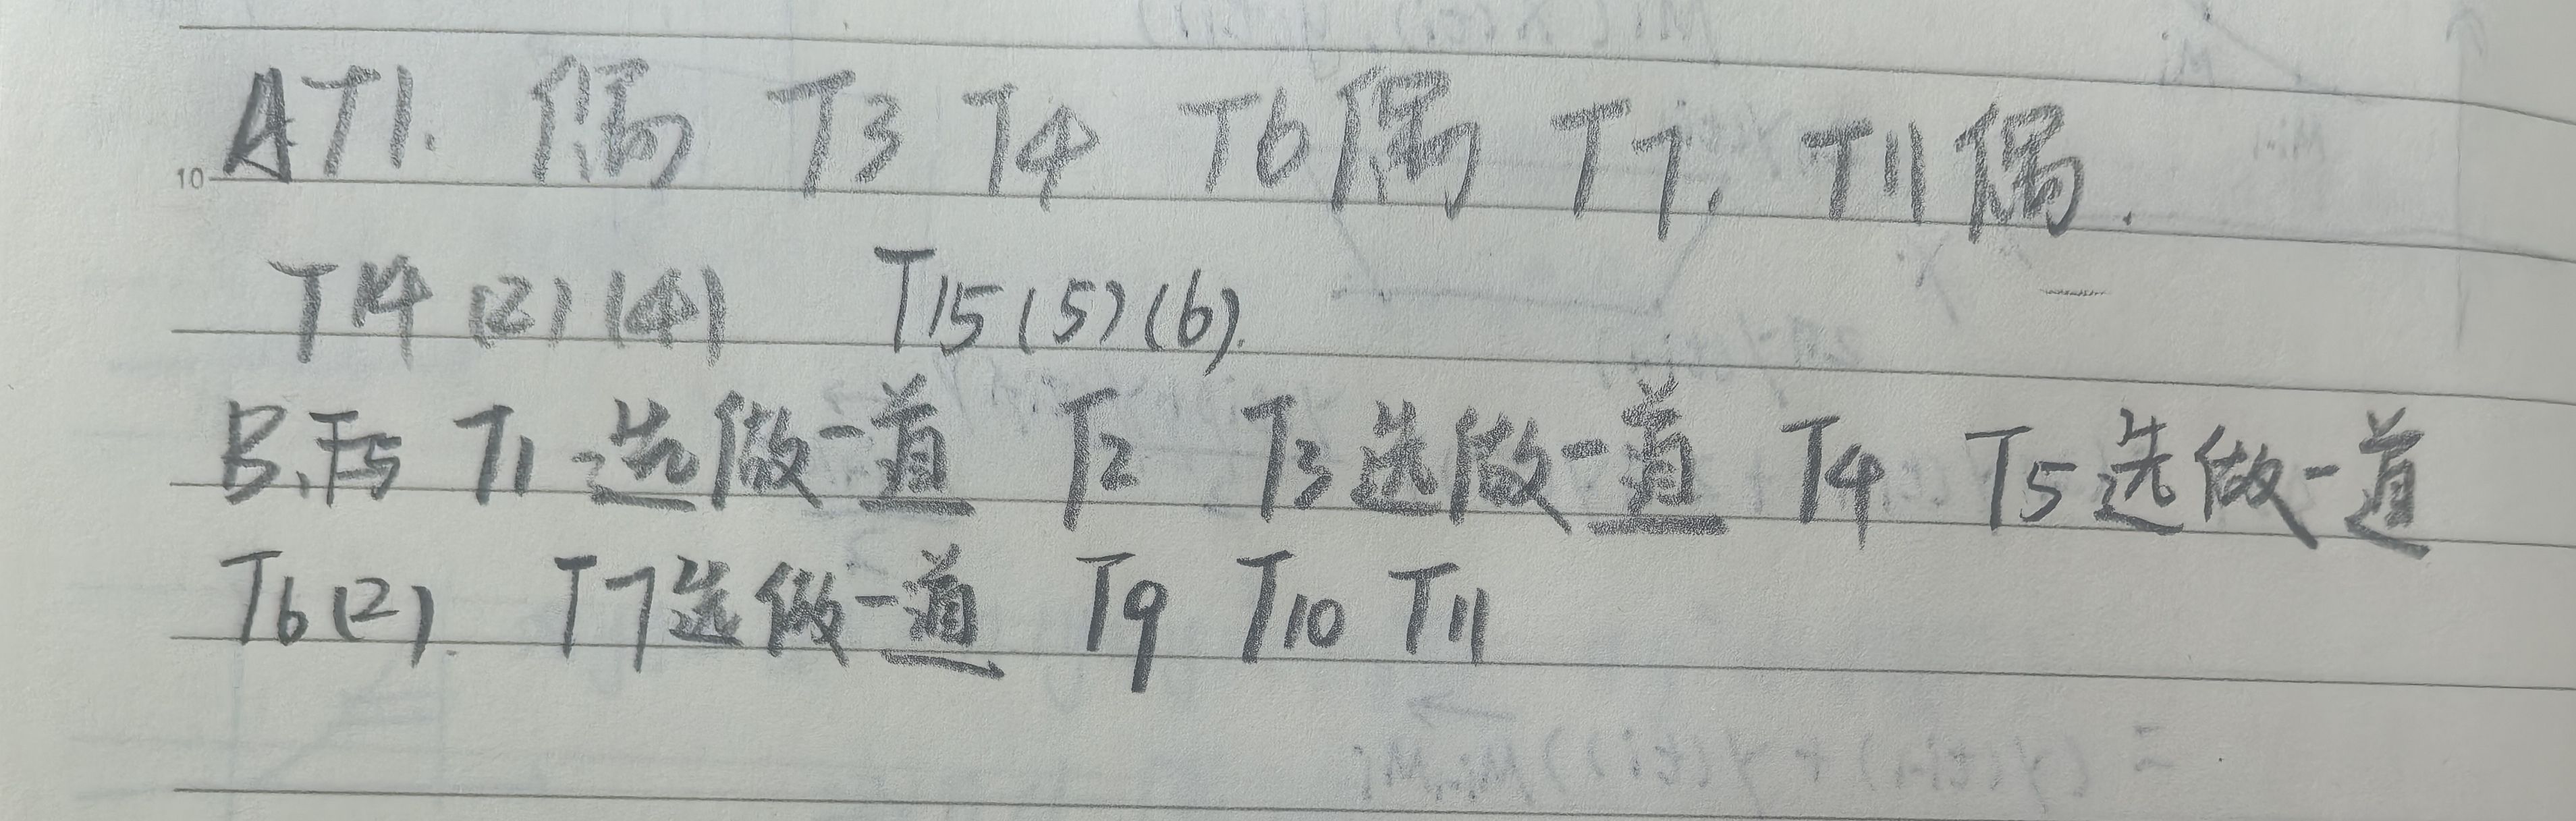 AT1. 偶 T3 T4 T6偶 T7. T11偶.
10
T14 (2) (4) T15 (5) (6).
B. T1 选做一道 T2 T3选做一道 T4 T5选做一道
T6(2). T7选做一道 T9 T10 T11